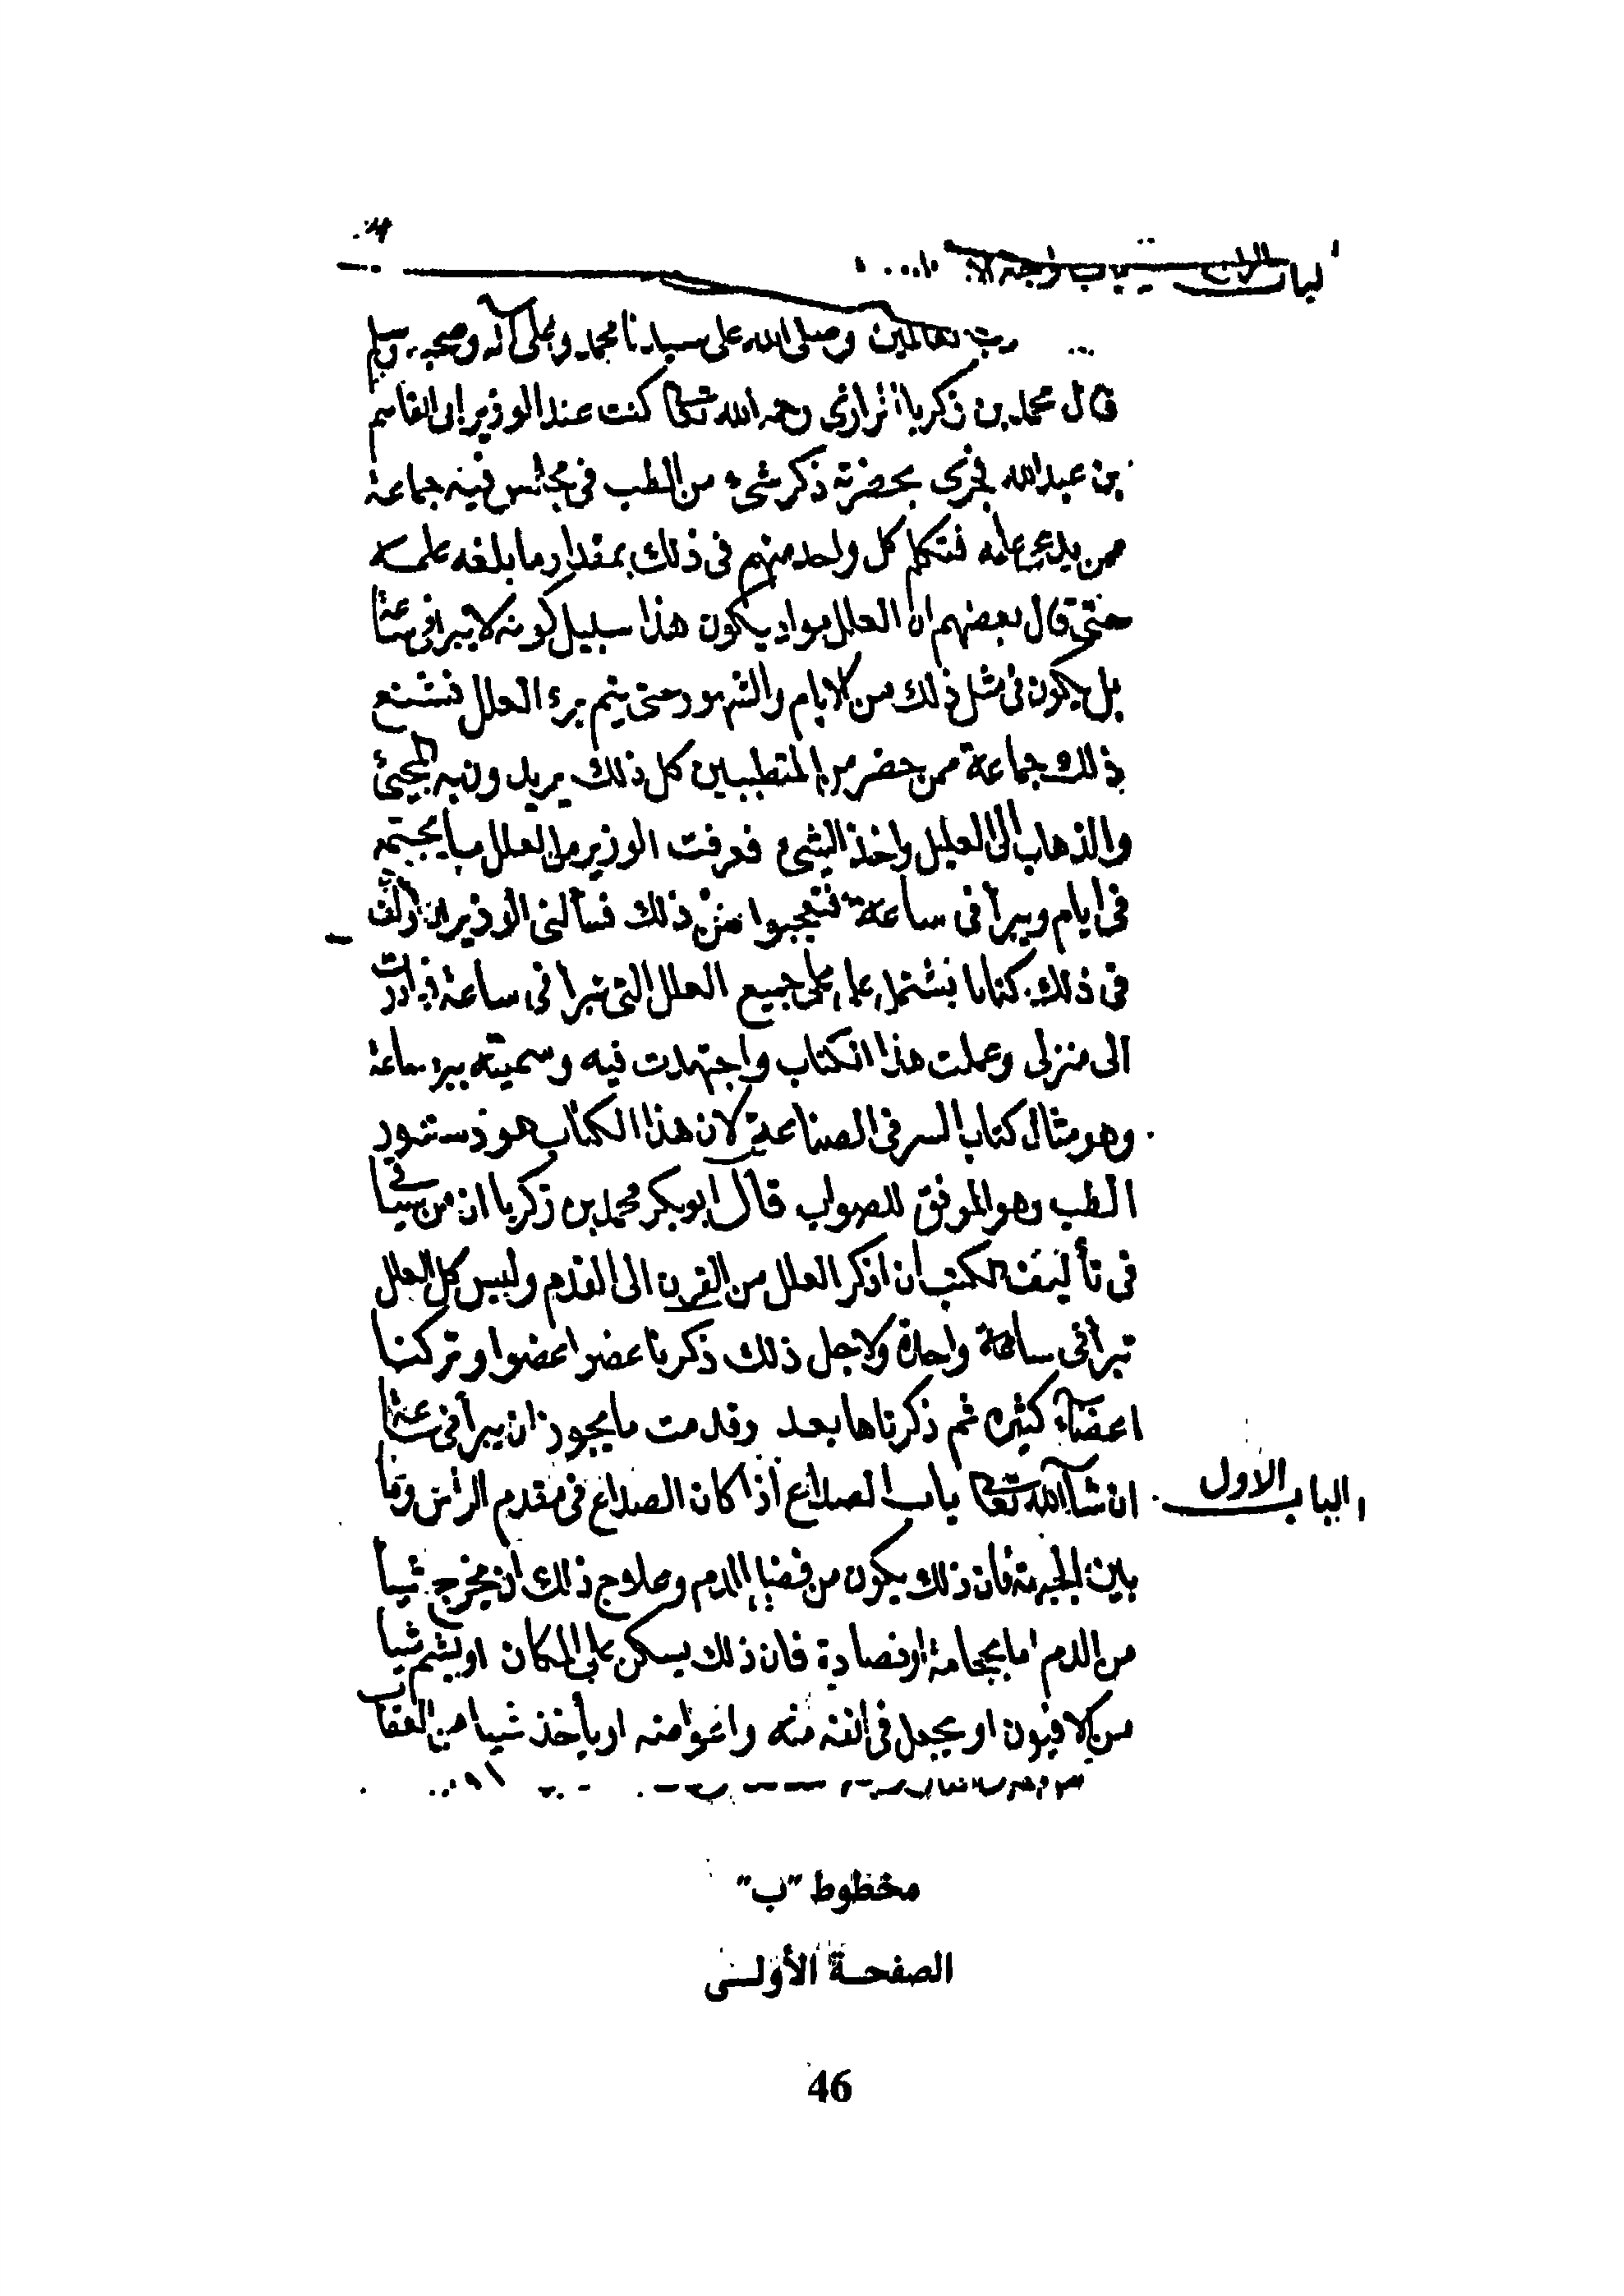 رب العالمين وصلى الله على سيدنا محمد وعلى آله وصحبه وسلم
قال محمد بن زكريا الرازى رحمه الله تعالى كنت عند الوزير ابى القاسم
بن عبدالله فجرى بحضرته ذكر شىء من الطب فى مجلس فيه جماعة
ممن يدعى علمه فتكلم كل واحد منهم فى ذلك بمقدار ما بلغه علمه
حتى قال بعضهم ان العلل مواد يكون هذا سبيل كونه لا يبرا فى ساعة
بل يكون فى مثل ذلك من الايام والشهور حتى يتم برء العلل فشنع
ذلك جماعة ممن حضر من المتطببين كل ذلك يريدون به المجيئ
والذهاب الى العليل واخذ الشىء فعرفت الوزير من العلل ما يجتمع
فى ايام ويبرأ فى ساعة فتعجبوا من ذلك فسألنى الوزير ان اولف
فى ذلك كتابا يشتمل على جميع العلل التى تبرا فى ساعة فبادرت
الى منزلى وعملت هذا الكتاب واجتهدت فيه وسميته ببرء ساعة
وهو مثال كتاب السر فى الصناعة لان هذا الكتاب هو دستور
الطب وهو الموفق للصواب قال ابو بكر محمد بن زكريا ان من
فى تأليف الكتب ان اذكر العلل من القرن الى القدم وليس كل العلل
تبرا فى ساعة واحدة ولاجل ذلك ذكرنا عضوا عضوا وتركنا
اعضاء كثيره ثم ذكرناها بعد وقدمت ما يجوز ان يبرأ فى ساعة
ان شاء الله تعالى باب الصداع اذا كان الصداع فى مقدم الراس وما
الباب الاول
بين الجبهة فان ذلك يكون من فضل الدم وعلاج ذلك ان يخرج شيا
من الدم اما بحجامة او فصادة فان ذلك يسكن على المكان او يشم شيا
من الافيون او يجعل فى انفه منه او يأخذ شيا من العقاب
مخطوط "ب"
الصفحة الأولى
46